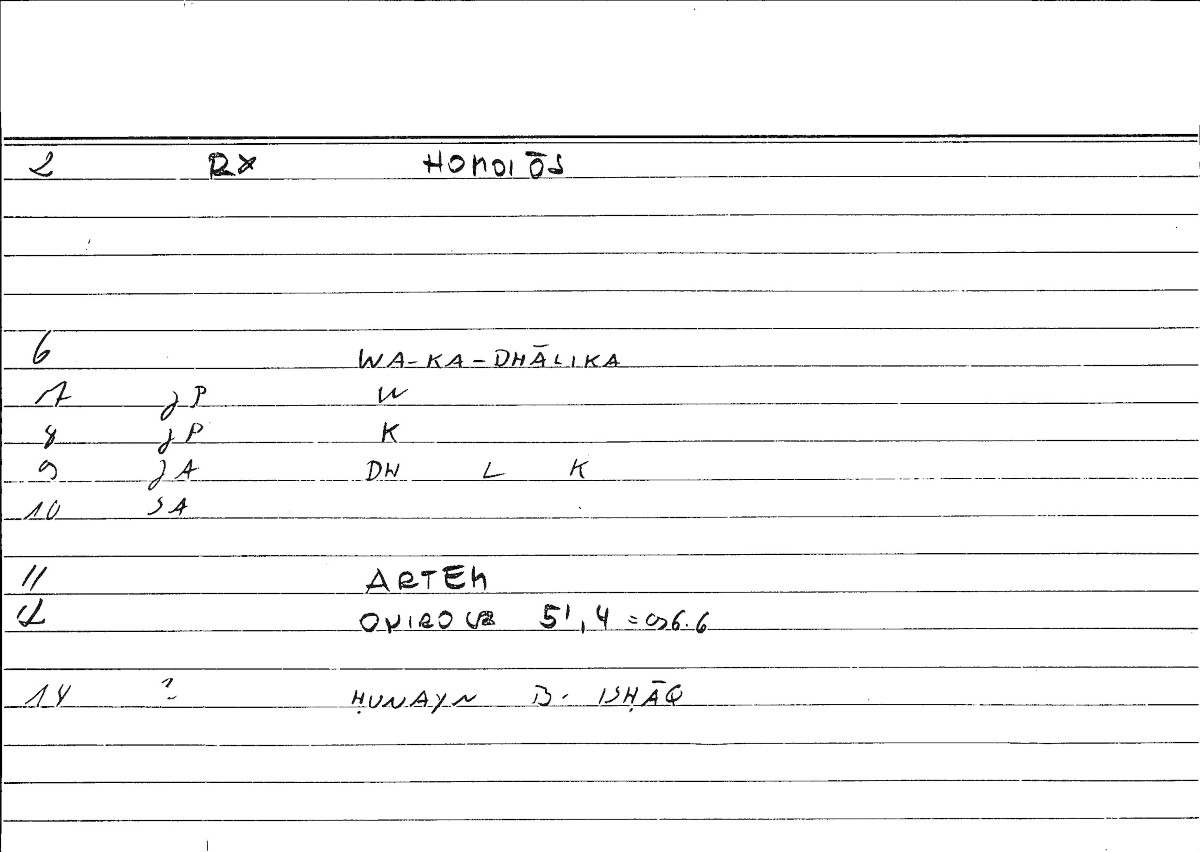 2 RX HOMOIŌS
6 WA-KA-DHĀLIKA
7 JP W
8 JP K
9 JA DH L K
10 SA
11 ARTEM
12 ONIROCR 51,4 = 6.6
14 ? ḤUNAYN B. ISḤĀQ